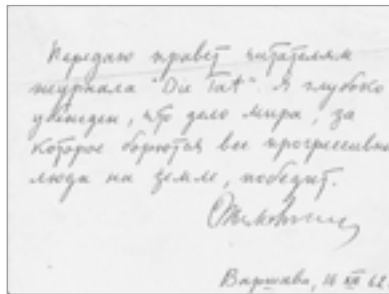 Передаю привет читателям
журнала "Die Tat". Я глубоко
убежден, что дело мира, за
которое борются все прогрессивные
люди на земле, победит.
Варшава, 16 XII 62